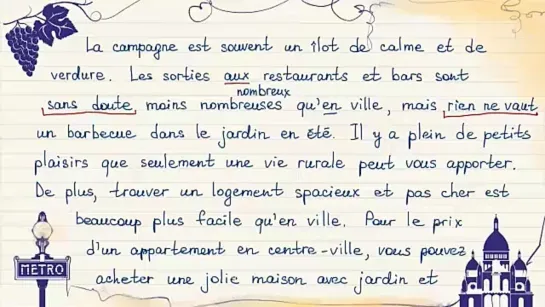 La campagne est souvent un îlot de calme et de
verdure. Les sorties aux restaurants et bars sont
nombreux
sans doute moins nombreuses qu'en ville, mais rien ne vaut
un barbecue dans le jardin en été. Il y a plein de petits
plaisirs que seulement une vie rurale peut vous apporter.
De plus, trouver un logement spacieux et pas cher est
beaucoup plus facile qu'en ville. Pour le prix
d'un appartement en centre-ville, vous pouvez
acheter une jolie maison avec jardin et
METRO